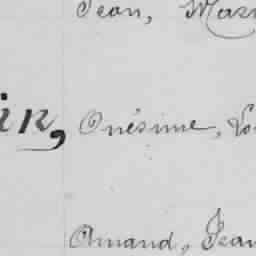 Jean,
in, Onésime,
Amand, Jean